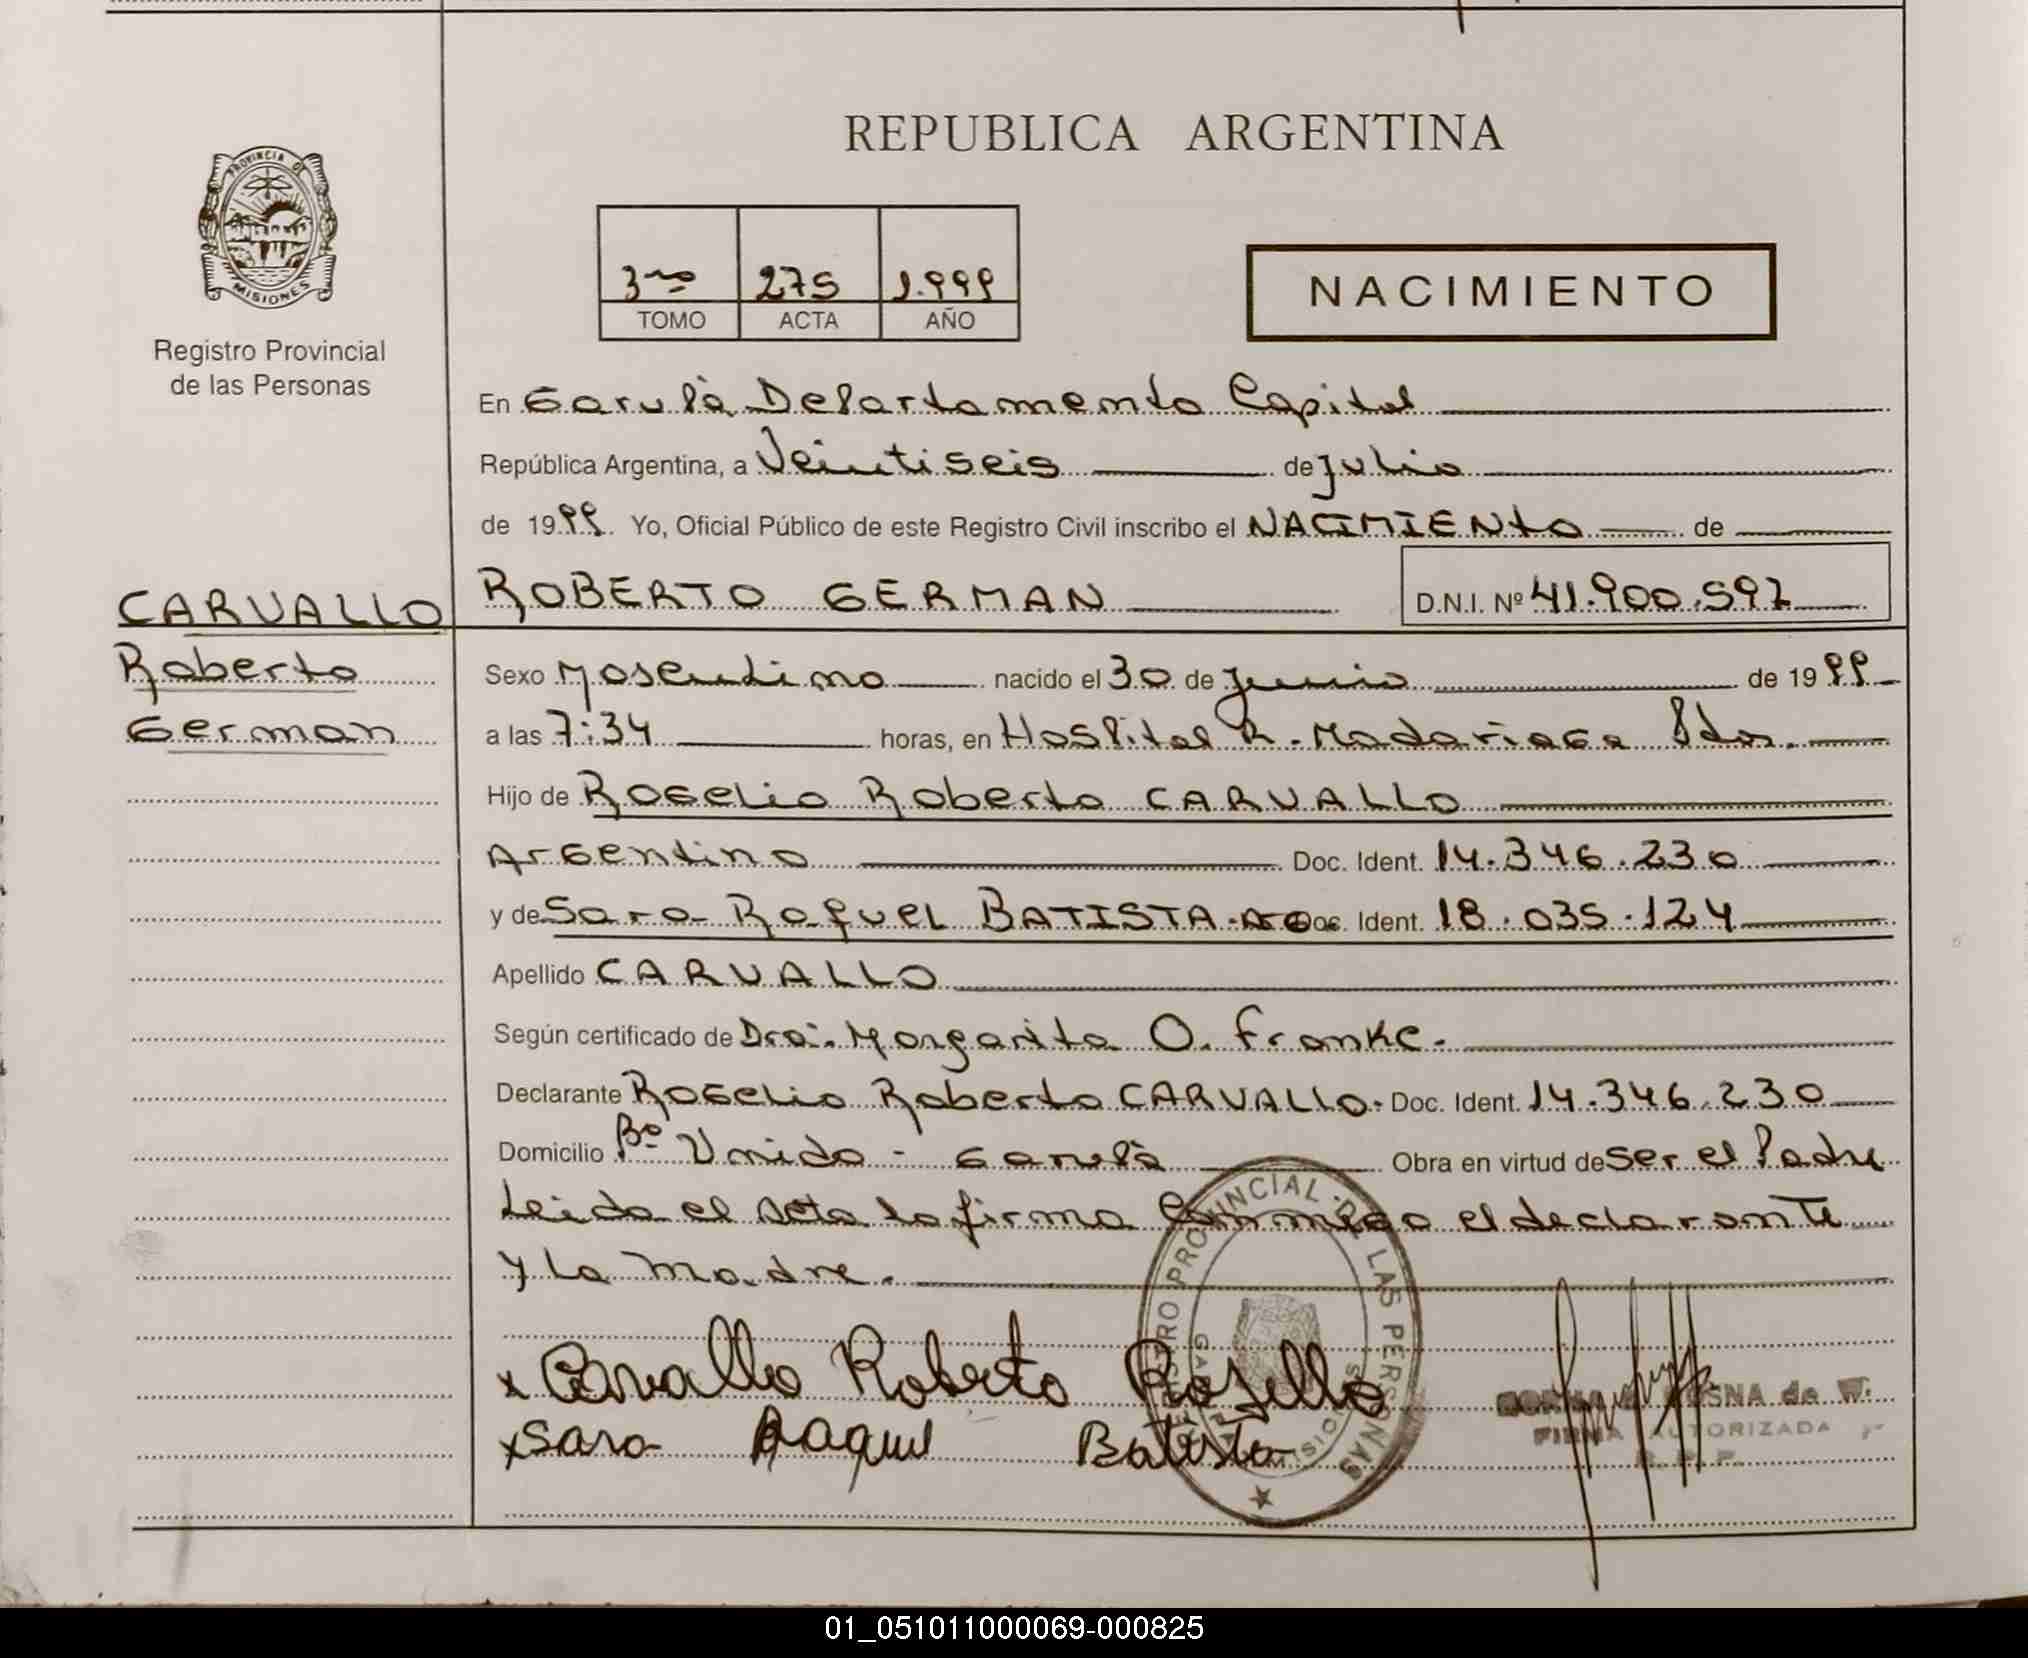 REPUBLICA ARGENTINA
PROVINCIA DE
MISIONES
Registro Provincial
de las Personas
3ro 275 1.999
TOMO ACTA AÑO
NACIMIENTO
En Garupà Departamento Capital
República Argentina, a Veintiseis de Julio
de 1999. Yo, Oficial Público de este Registro Civil inscribo el NACIMIENto de
CARVALLO
Roberto
German
ROBERTO GERMAN D.N.I. Nº 41.900.592
Sexo Masculino nacido el 30 de Junio de 1999
a las 7:34 horas, en Hospital R. Madariaga Pdas.
Hijo de Rogelio Roberto CARVALLO
Argentino Doc. Ident. 14.346.230
y de Sara Raquel BATISTA Doc. Ident. 18.035.124
Apellido CARVALLO
Según certificado de Dra. Margarita O. Franke.
Declarante Rogelio Roberto CARVALLO. Doc. Ident. 14.346.230
Domicilio Bº Unido - Garupà Obra en virtud de ser el Padre
Leida el acta la firma Conmigo el declarante
y La madre.
x Carvallo Roberto Rogelio
x Sara Raquel Batista
REGISTRO PROVINCIAL DE LAS PERSONAS
GARUPA
MISIONES
OSNA de W.
FIRMA AUTORIZADA
R. P. P.
01_051011000069-000825